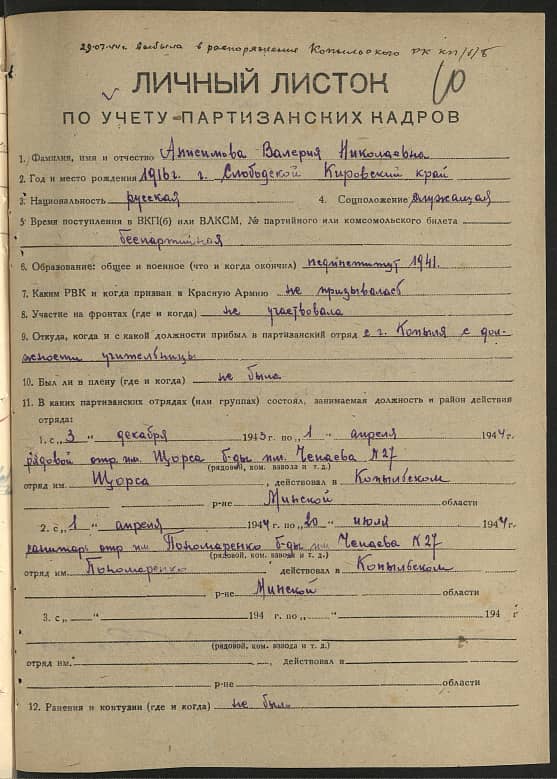 29.07.44г. выбыла в распоряжение Копыльского РК КП/б/Б
10
ЛИЧНЫЙ ЛИСТОК
ПО УЧЕТУ ПАРТИЗАНСКИХ КАДРОВ
1. Фамилия, имя и отчество Анисимова Валерия Николаевна
2. Год и место рождения 1916г. г. Слободской Кировский край
3. Национальность русская 4. Соцположение служащая
5. Время поступления в ВКП(б) или ВЛКСМ, № партийного или комсомольского билета
беспартийная
6. Образование: общее и военное (что и когда окончил) пединститут 1941.
7. Каким РВК и когда призван в Красную Армию не призывалась
8. Участие на фронтах (где и когда) не участвовала
9. Откуда, когда и с какой должности прибыл в партизанский отряд с г. Копыля с дол-
жности учительницы
10. Был ли в плену (где и когда) не была
11. В каких партизанских отрядах (или группах) состоял, занимаемая должность и район действия
отряда:
1. с „3 „ декабря 1943 г. по „1 „ апреля 1944г.
рядовой отр. им. Щорса б-ды им. Чепаева N27
(рядовой, ком. взвода и т. д.)
отряд им. Щорса, действовал в Копыльском
р-не Минской области
2. с „1 „ апреля 1944 г. по „20 „ июля 1944г.
санитар отр им Пономаренко б-ды им Чепаева N27
(рядовой, ком. взвода и т. д.)
отряд им. Пономаренко действовал в Копыльском
р-не Минской области
3. с „ „ 194 г. по „ „ 194 г
(рядовой, ком. взвода и т. д.)
отряд им. , действовал в
р-не области
12. Ранения и контузии (где и когда) не было